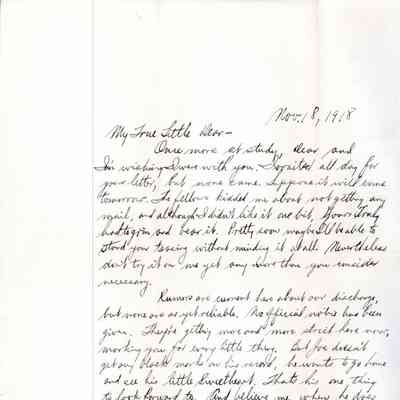 Nov. 18, 1918
My True Little Dear—
Once more at study, dear and
I'm wishing I was with you. I waited all day for
your letter, but none came. Suppose it will come
tomorrow. The fellows kidded me about not getting any
mail, and although I didn't like it one bit, yours truly
had to grin and bear it. Pretty soon maybe I'll be able to
stand your teasing without minding it at all. Nevertheless
don't try it on me yet any more than you consider
necessary.
Rumors are current here about our discharge,
but none are as yet reliable. No official notice has been
given. They're getting more and more strict here now,
working you for every little thing. But Joe doesn't
get any black marks on his record, he wants to go home
and see his little sweetheart. That's his one, thing
to look forward to. And believe me when he does